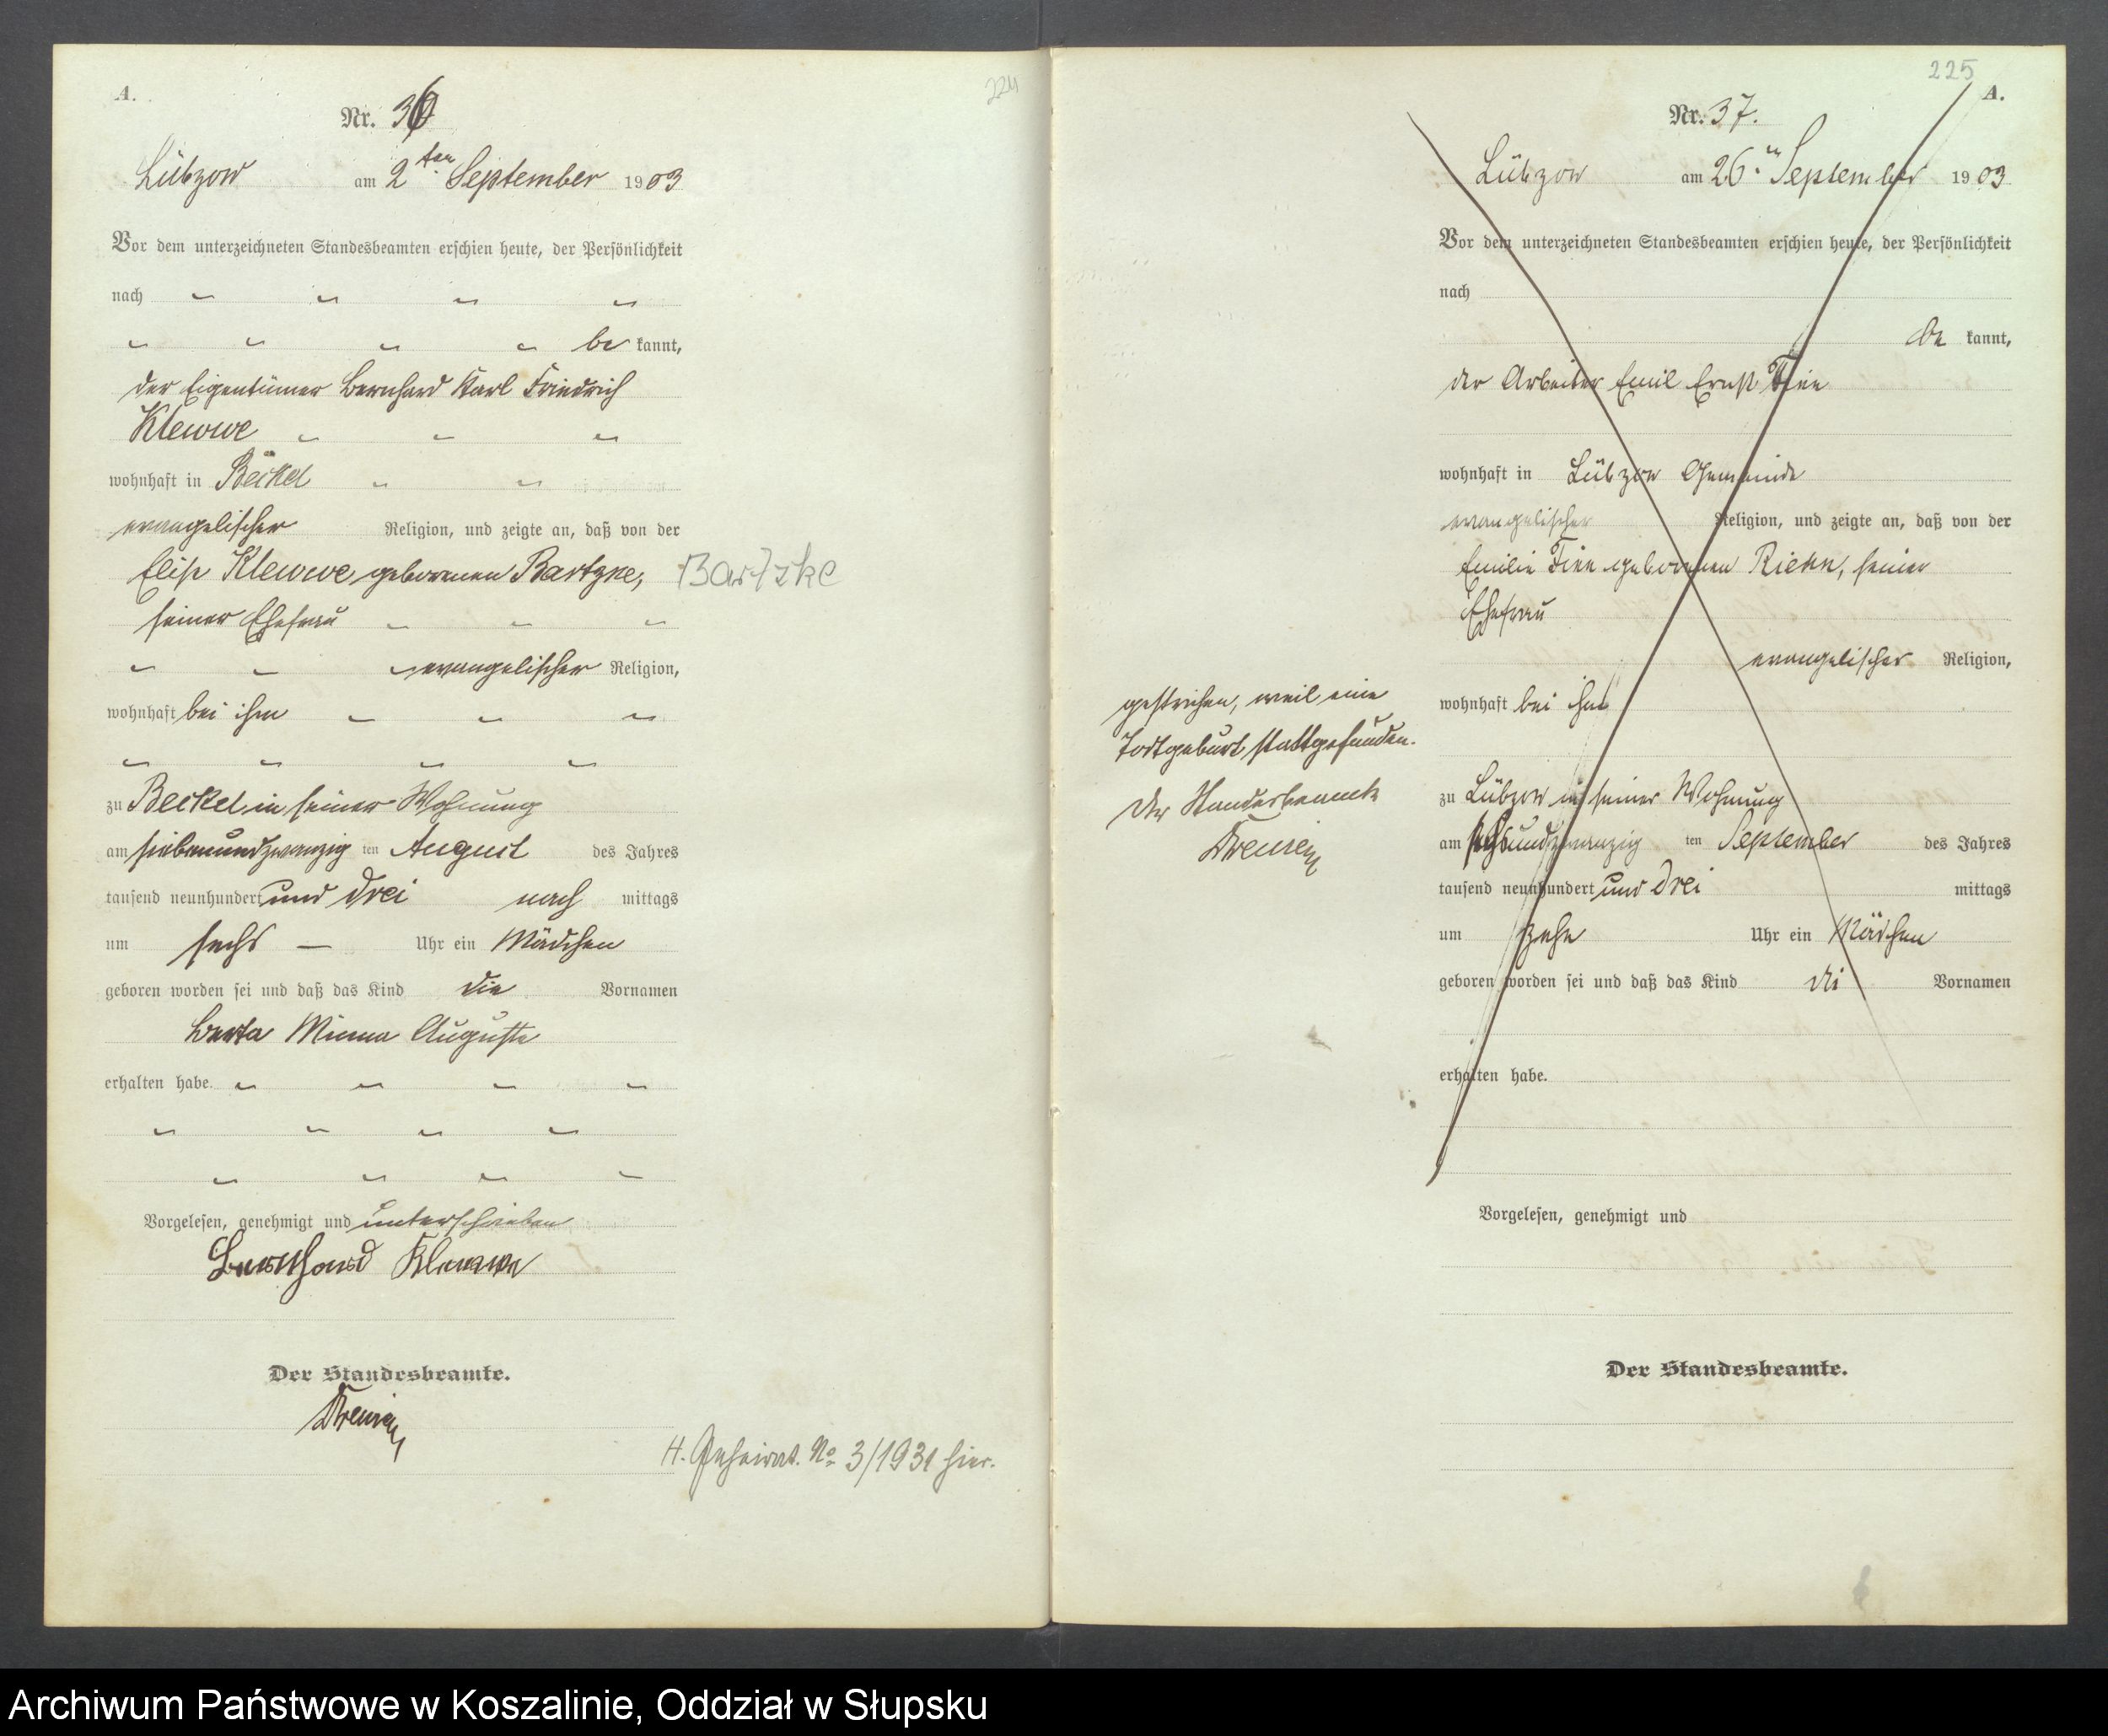 A.
224
Nr. 36
Lübzow am 2ten September 1903
Vor dem unterzeichneten Standesbeamten erschien heute, der Persönlichkeit
nach
be kannt,
der Eigentümer Bernhard Karl Friedrich
Klewwe
wohnhaft in Beckel
evangelischer Religion, und zeigte an, daß von der
Elise Klewwe geborenen Bartzke, Bartzke
seiner Ehefrau
evangelischer Religion,
wohnhaft bei ihm
zu Beckel in seiner Wohnung
am siebenundzwanzig ten August des Jahres
tausend neunhundert und drei nach mittags
um sechs — Uhr ein Mädchen
geboren worden sei und daß das Kind die Vornamen
Berta Minna Auguste
erhalten habe.
Vorgelesen, genehmigt und unterschrieben
Bernhard Klewwe
Der Standesbeamte.
H. Geheirat. No 3/1931 hier.
225
A.
Nr. 37.
Lübzow am 26. September 1903
Vor dem unterzeichneten Standesbeamten erschien heute, der Persönlichkeit
nach
be kannt,
der Arbeiter Emil Ernst
wohnhaft in Lübzow Gemeinde
evangelischer Religion, und zeigte an, daß von der
Emilie geborenen seiner
Ehefrau
evangelischer Religion,
wohnhaft bei ihm
zu Lübzow in seiner Wohnung
am sechsundzwanzig ten September des Jahres
tausend neunhundert und drei mittags
um zehn Uhr ein Mädchen
geboren worden sei und daß das Kind die Vornamen
erhalten habe.
Vorgelesen, genehmigt und
Der Standesbeamte.
gestrichen, weil eine
Todtgeburt stattgefunden.
Der Standesbeamte
Archiwum Państwowe w Koszalinie, Oddział w Słupsku